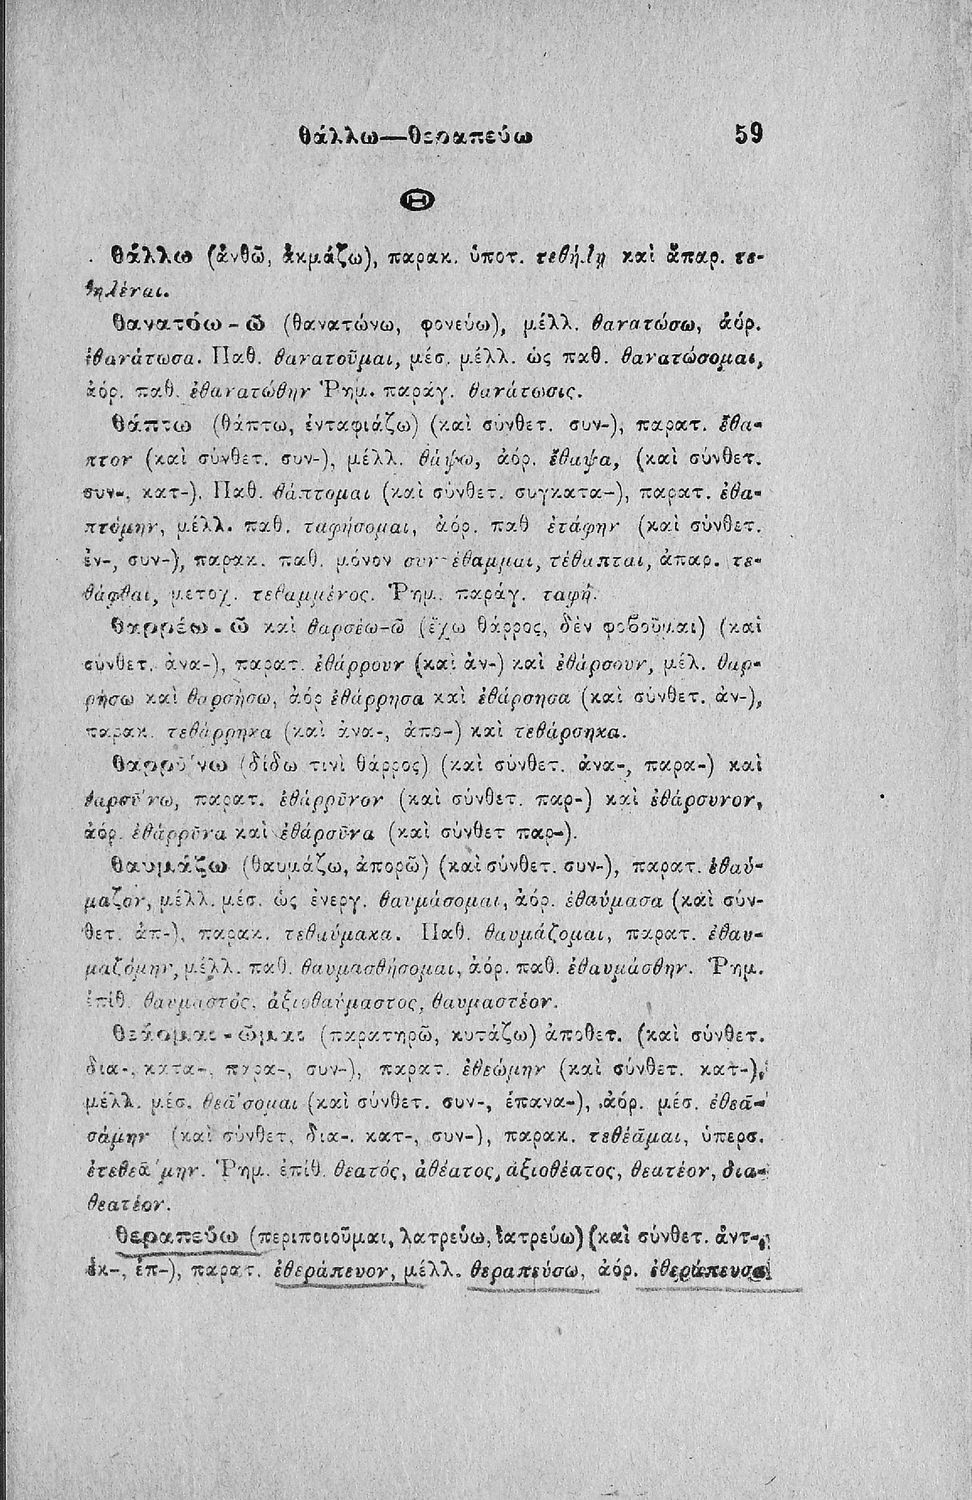 θάλλω—θεραπεύω 59
Θ
θάλλω (ἀνθῶ, ἀκμάζω), παρακ. ὑποτ. τεθήλῃ καὶ ἄπαρ. τε-
θηλέναι.
θανατόω-ῶ (θανατώνω, φονεύω), μέλλ. θανατώσω, ἀόρ.
ἐθανάτωσα. Παθ. θανατοῦμαι, μέσ. μέλλ. ὡς παθ. θανατώσομαι,
ἀόρ. παθ. ἐθανατώθην Ῥημ. παράγ. θανάτωσις.
θάπτω (θάπτω, ἐνταφιάζω) (καὶ σύνθετ. συν-), παρατ. ἔθα-
πτον (καὶ σύνθετ. συν-), μέλλ. θάψω, ἀόρ. ἔθαψα, (καὶ σύνθετ.
συν-, κατ-). Παθ. θάπτομαι (καὶ σύνθετ. συγκατα-), παρατ. ἐθα-
πτόμην, μέλλ. παθ. ταφήσομαι, ἀόρ. παθ ἐτάφην (καὶ σύνθετ.
ἐν-, συν-), παρακ. παθ. μόνον συν-έθαμμαι, τέθαπται, ἀπαρ. τε-
θάφθαι, μετοχ. τεθαμμένος. Ῥημ. παράγ. ταφή.
θαρρέω-ῶ καὶ θαρσέω-ῶ (ἔχω θάρρος, δὲν φοβοῦμαι) (καὶ
σύνθετ. ἀνα-), παρατ. ἐθάρρουν (καὶ ἀν-) καὶ ἐθάρσουν, μέλ. θαρ-
ρήσω καὶ θαρσήσω, ἀόρ ἐθάρρησα καὶ ἐθάρσησα (καὶ σύνθετ. ἀν-),
παρακ. τεθάρρηκα (καὶ ἀνα-, ἀπο-) καὶ τεθάρσηκα.
θαρρύνω (δίδω τινὶ θάρρος) (καὶ σύνθετ. ἀνα-, παρα-) καὶ
θαρσύνω, παρατ. ἐθάρρῡνον (καὶ σύνθετ. παρ-) καὶ ἐθάρσυνον,
ἀόρ. ἐθάρρῡνα καὶ ἐθάρσῡνα (καὶ σύνθετ παρ-).
θαυμάζω (θαυμάζω, ἀπορῶ) (καὶ σύνθετ. συν-), παρατ. ἐθαύ-
μαζον, μέλλ. μέσ. ὡς ἐνεργ. θαυμάσομαι, ἀόρ. ἐθαύμασα (καὶ σύν-
θετ. ἀπ-), παρακ. τεθαύμακα. Παθ. θαυμάζομαι, παρατ. ἐθαυ-
μαζόμην, μέλλ. παθ. θαυμασθήσομαι, ἀόρ. παθ. ἐθαυμάσθην. Ῥημ.
ἐπίθ. θαυμαστός, ἀξιοθαύμαστος, θαυμαστέον.
θεάομαι-ῶμαι (παρατηρῶ, κυτάζω) ἀποθετ. (καὶ σύνθετ.
δια-, κατα-, παρα-, συν-), παρατ. ἐθεώμην (καὶ σύνθετ. κατ-),
μέλλ. μέσ. θεᾱ́σομαι (καὶ σύνθετ. συν-, ἐπανα-), ἀόρ. μέσ. ἐθεᾱ-
σάμην (καὶ σύνθετ. δια-. κατ-, συν-), παρακ. τεθέᾱμαι, ὑπερσ.
ἐτεθεᾱ́μην. Ῥημ. ἐπίθ. θεατός, ἀθέατος, ἀξιοθέατος, θεατέον, δια-
θεατέον.
θεραπεύω (περιποιοῦμαι, λατρεύω, ἰατρεύω) (καὶ σύνθετ. ἀντ-,
ἐκ-, ἐπ-), παρατ. ἐθεράπευον, μέλλ. θεραπεύσω, ἀόρ. ἐθεράπευσα